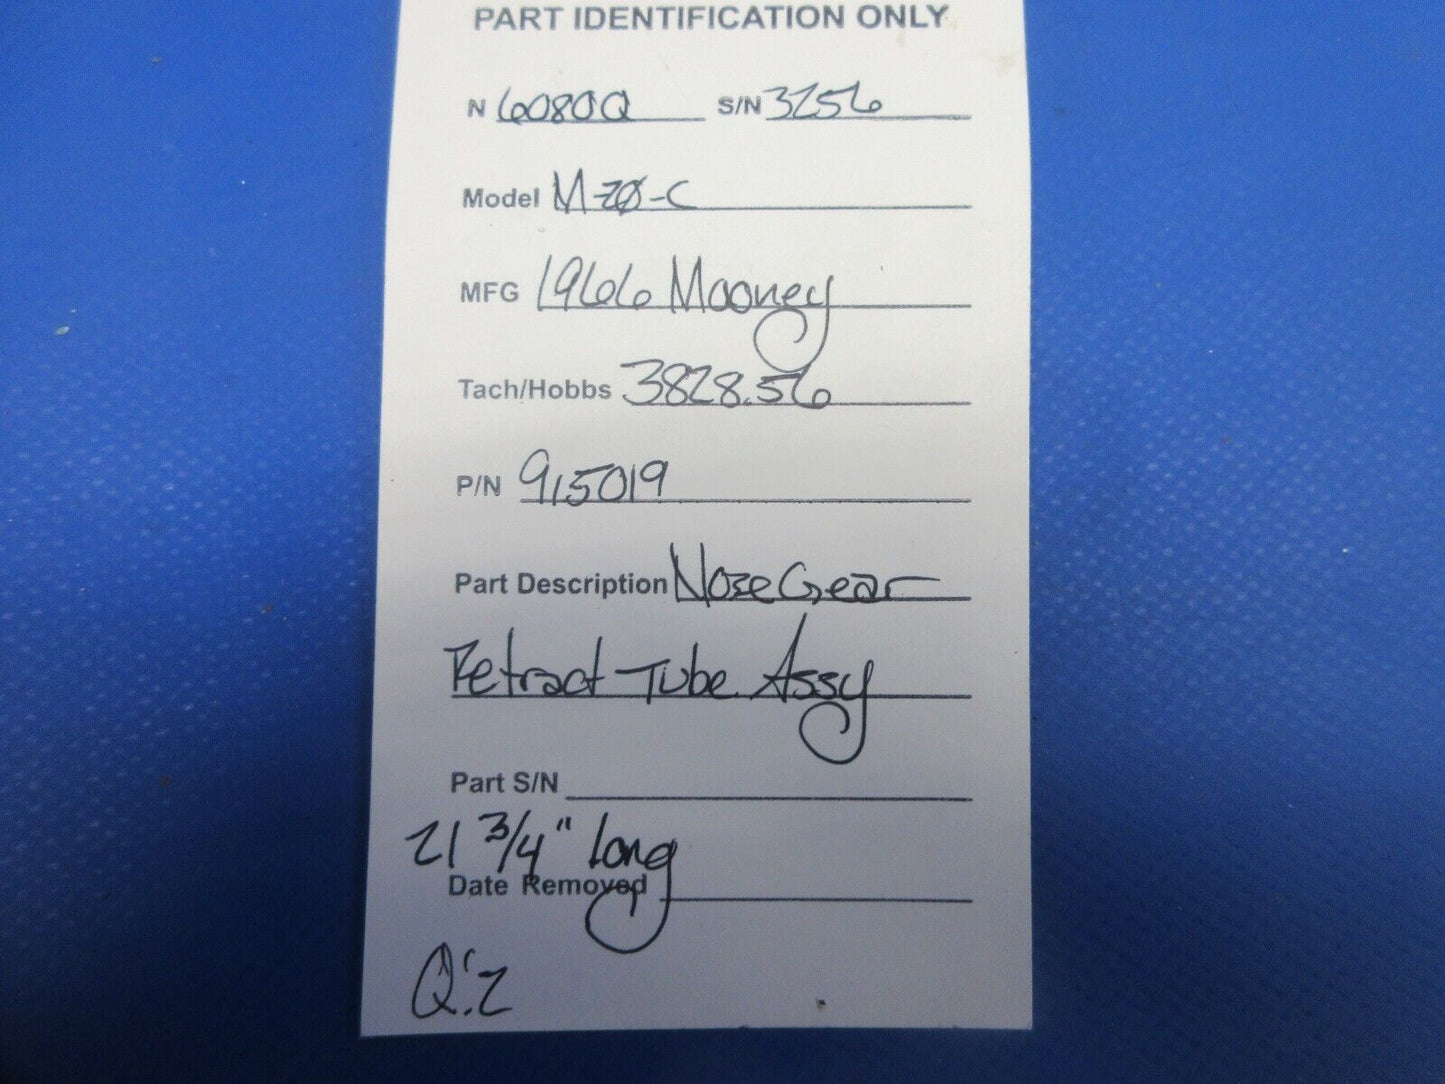 PART IDENTIFICATION ONLY
N 6080Q S/N 3256
Model M-20-C
MFG 1966 Mooney
Tach/Hobbs 3828.56
P/N 915019
Part Description Nose Gear
Retract Tube Assy
Part S/N
21 3/4" long
Date Removed
Q:2